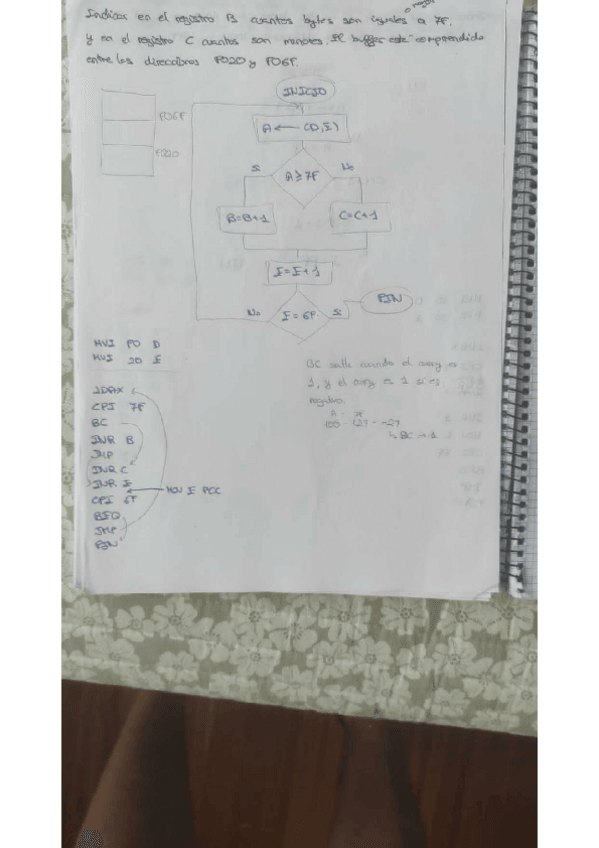 o mayores
Indicar en el registro B cuantos bytes son iguales a 7F,
y en el registro C cuantos son menores. El buffer esta comprendido
entre las direcciones F020 y F06F.
INICIO
F06F
F020
A ← (D,E)
Si
A ≥ 7F
No
B=B+1
C=C+1
E=E+1
No
E = 6F
Si
FIN
MVI F0 D
MVI 20 E
LDAX
CPI 7F
BC
INR B
JMP
INR C
INR E
MOV E ACC
CPI 6F
BEQ
JMP
FIN
BC salta cuando el carry es
1, y el carry es 1 si es
negativo.
100 - 127 = -27
↳ BC → 1